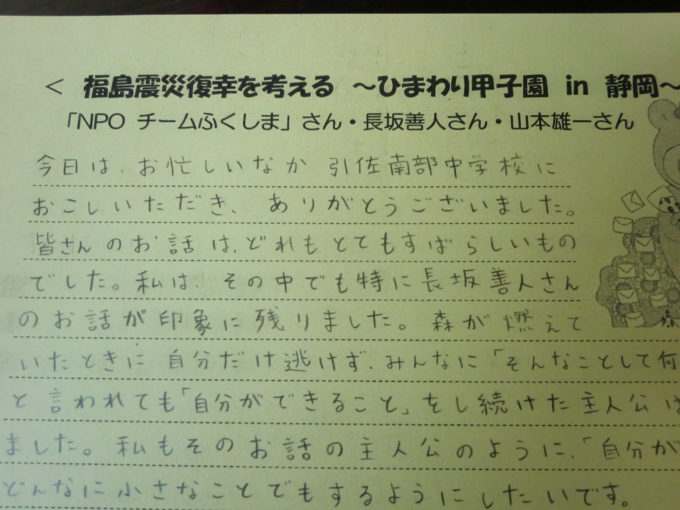 < 福島震災復幸を考える ～ひまわり甲子園 in 静岡～
「NPO チームふくしま」さん・長坂善人さん・山本雄一さん
今日は、お忙しいなか 引佐南部中学校に
おこしいただき、ありがとうございました。
皆さんのお話は、どれもとてもすばらしいもの
でした。私は、その中でも特に長坂善人さん
のお話が印象に残りました。森が燃えて
いたときに 自分だけ逃げず、みんなに「そんなことして何
と言われても「自分ができること」をし続けた主人公は
ました。私もそのお話の主人公のように、「自分が
どんなに小さなことでもするようにしたいです。